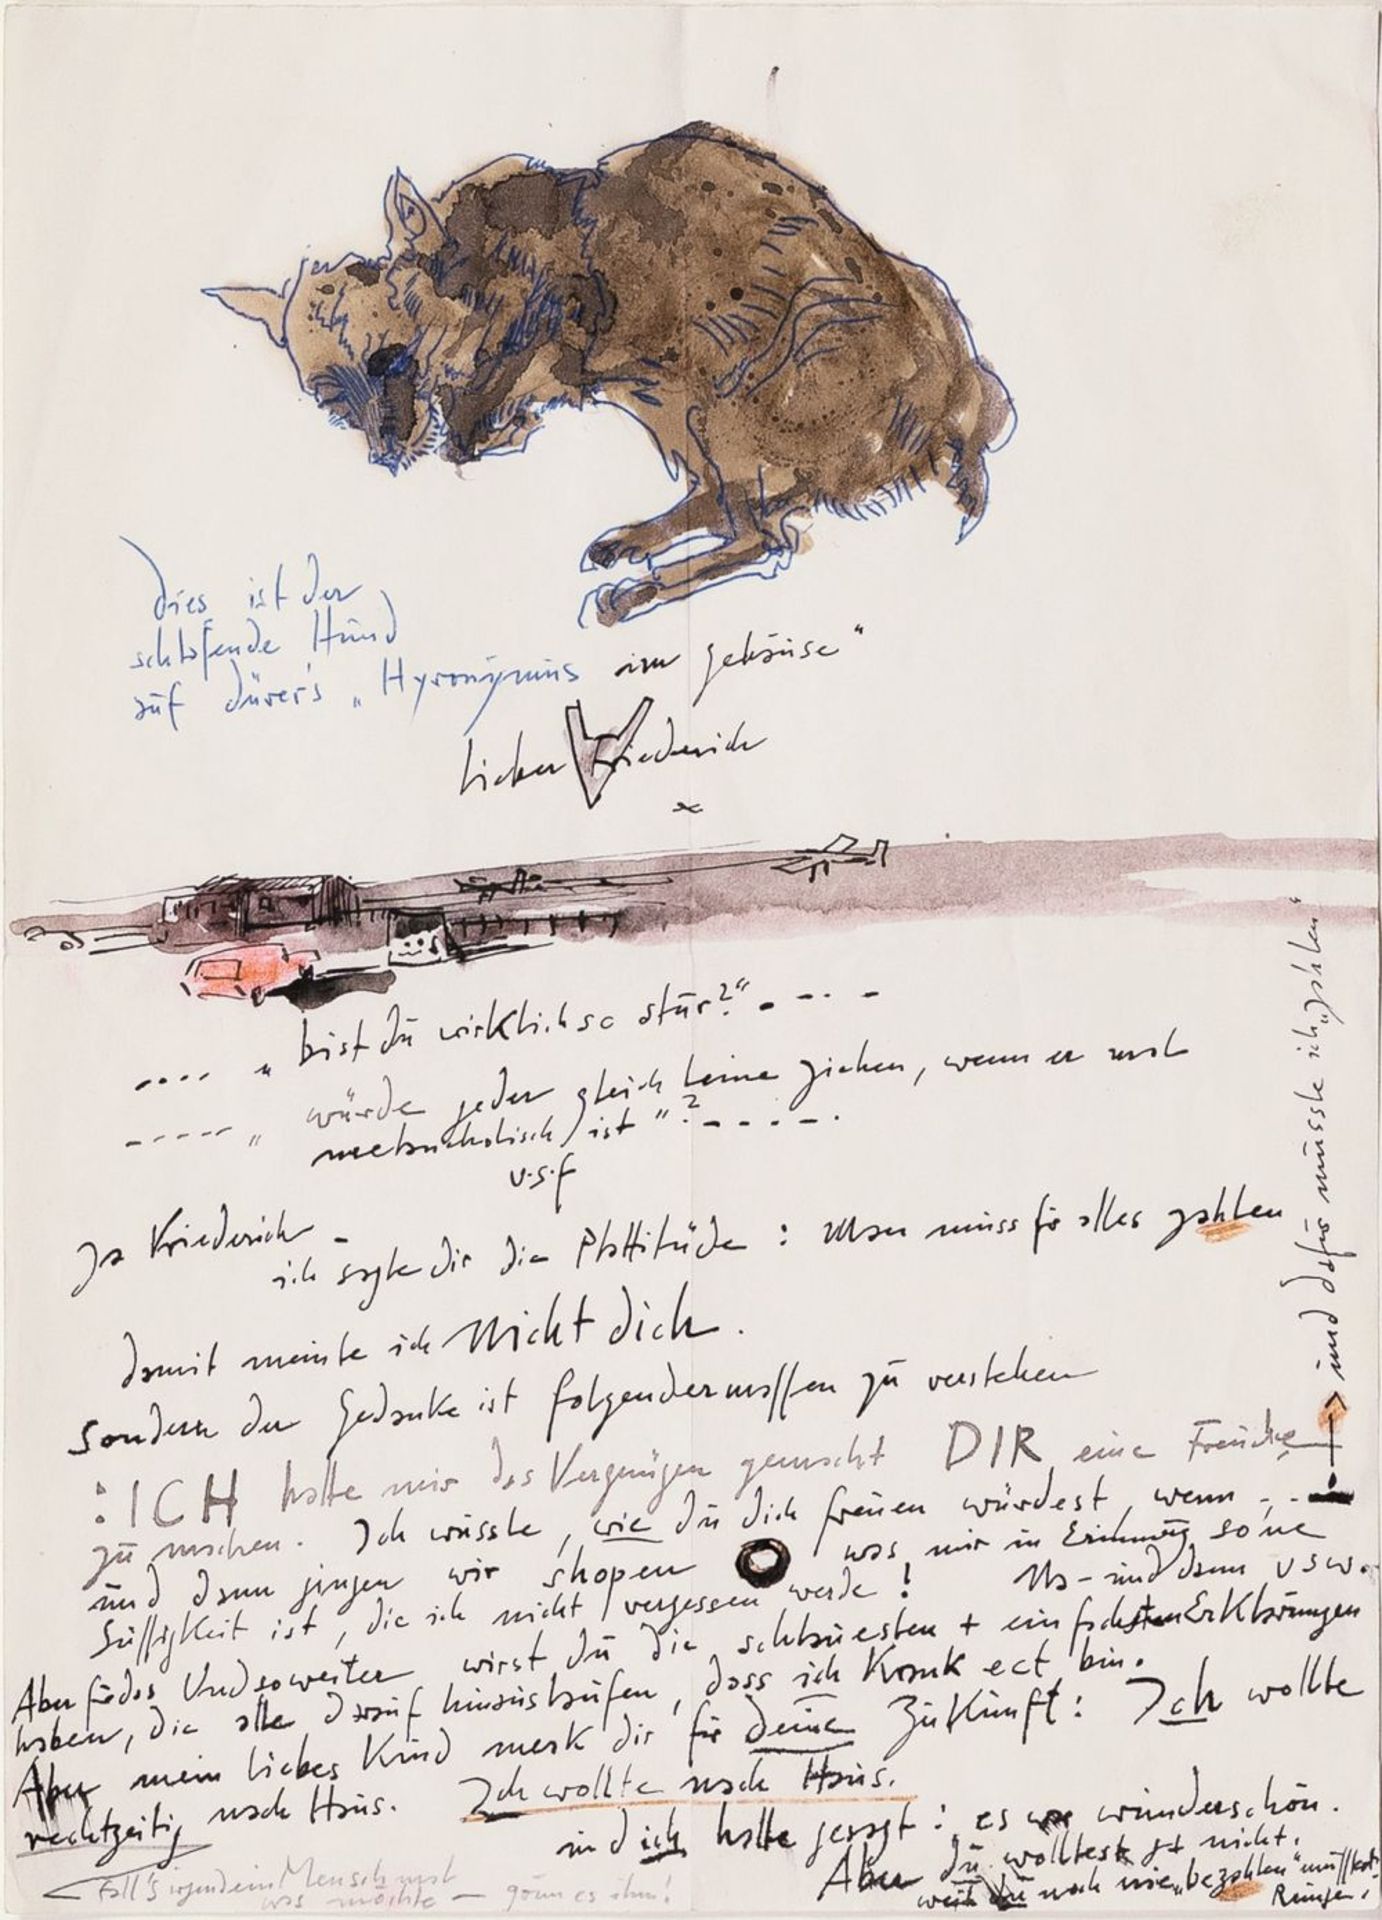 dies ist der
schlafende Hund
auf dürer's „Hyronÿmus im gehäuse"
lieber Friederich
.... „bist du wirklich so stur?" . - -. -
----- „würde jeder gleich Leine ziehen, wenn er mal
melancholisch ist"? - - - - - .
u.s.f
Ja Friederich -
ich sagte dir die Plattitüde : Man muss für alles zahlen
damit meinte ich Nicht dich.
sondern der Gedanke ist folgendermassen zu verstehen
: ICH hatte mir das Vergnügen gemacht DIR eine Freude
→ und dafür müsste ich „zahlen"
zu machen. Ich wusste, wie du dich freuen würdest, wenn - . -
und dann gingen wir shopen was mir in so'ne
Süssigkeit ist, die ich nicht vergessen werde! Na - und dann usw.
Aber für das Undsoweiter wirst du die schlauesten + einfachsten Erklärungen
haben, die alle darauf hinauslaufen, dass ich Krank ect bin.
Aber mein liebes Kind merk dir für deine Zukunft: Ich wollte
rechtzeitig nach Haus. Ich wollte nach Haus.
und ich hatte gesagt: es war wunderschön.
Aber du wolltest nicht.
weil du noch nie „bezahlen" musstest
Fall's irgendein Mensch mal
was möchte — gönn es ihm!